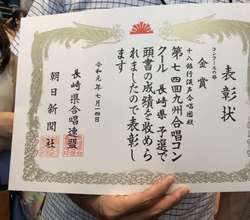 表彰状
コンクールの部
金賞
十八銀行混声合唱団殿
第七四回九州合唱コン
クール 長崎県予選で
頭書の成績を収めら
れましたので表彰し
ます
令和元年七月一四日
長崎県合唱連盟
朝日新聞社